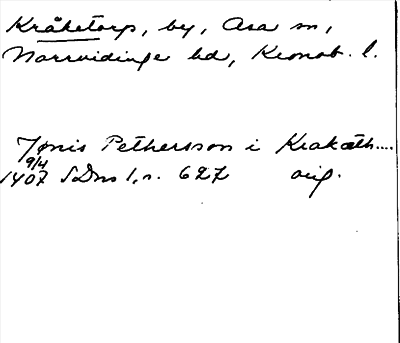 Kråketorp, by, Asa sn,
Norrvidinge hd, Kronob. l.
Jønis Pethersson i Krakæth....
9/4
1407 SDns 1, s. 627 orig.